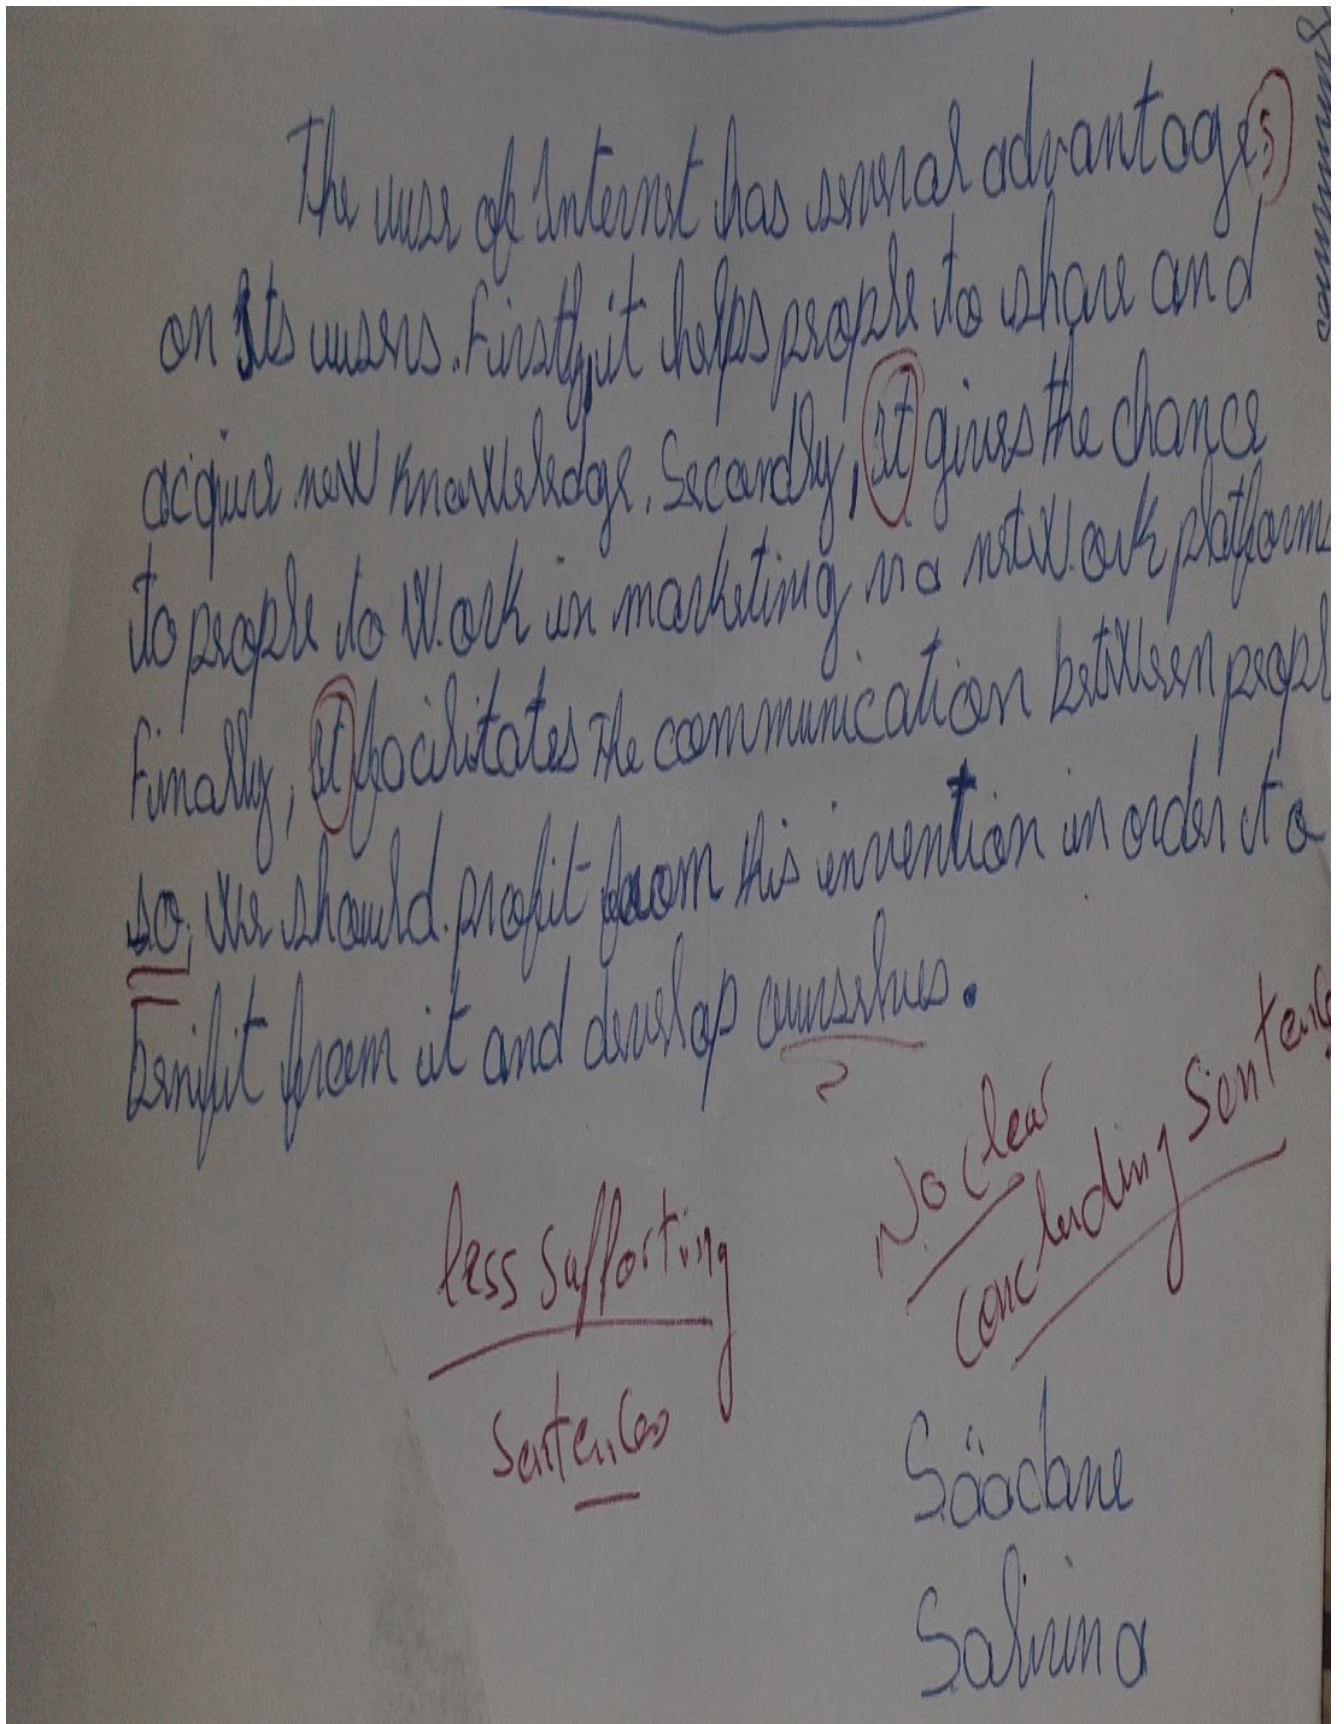 The use of Internet has several advantages
on Its users. Firstly, it helps people to share and
acquire new knowledge. Secondly, it gives the chance
to people to work in marketing via network platforms
Finally, it facilitates the communication between peopl
so, we should profit from this invention in order to
benifit from it and develop ourselves.
No clear
concluding Sentence
less supporting
sentences
Säadane
Sabrina